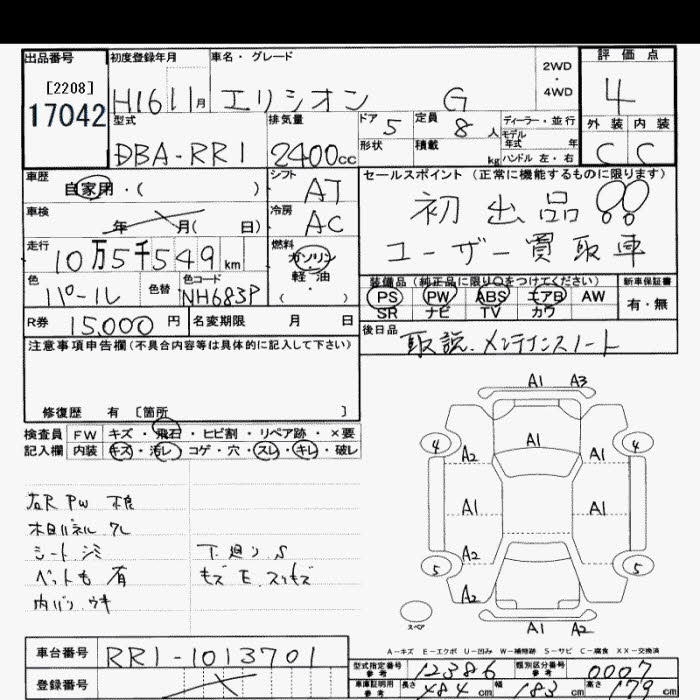 出品番号 初度登録年月 車名・グレード 2WD・4WD 評価点
[2208]
17042 H16 11月 エリシオン G 4
型式 排気量 ドア 5 定員 8人 ディーラー・並行 外装 内装
DBA-RR1 2400cc 形状 積載 kg モデル年式 年 ハンドル 左・右 C C
車歴 自家用・( ) シフト AT セールスポイント(正常に機能するものに限ります)
車検 年 月( 日) 冷房 AC 初出品!!
走行 10万5千549km 燃料 ガソリン 軽・油 ・ ( ) ユーザー買取車
色 パール 色替 色コード NH683P 装備品(純正品に限り○をつけてください) 新車保証書
PS PW ABS エアB AW 有・無
SR ナビ TV カワ
R券 15,000円 名変期限 月 日 後日品 取説.メンテナンスノート
注意事項申告欄(不具合内容等は具体的に記入して下さい)
修復歴 有 [箇所 ]
検査員 FW キズ・飛石・ヒビ割・リペア跡・×要
記入欄 内装 キズ・汚レ・コゲ・穴・スレ・キレ・破レ
A1 A3
4 A1 4
A2 A2
A1 A1 A1
A2
5 5
A2
スペア
A1 A2
右R PW 不良
木目パネル クレ
シート シミ 下廻り S
ペット毛 有 キズ E. スリキズ
内バリ ウキ
A-キズ E-エクボ U-凹み W-補修跡 S-サビ C-腐食 XX-交換済
車台番号 RR1-1013701 型式指定番号 参考 12386 類別区分番号 参考 0007
登録番号 車庫証明用 参考 長さ 484cm 幅 183cm 高さ 179cm